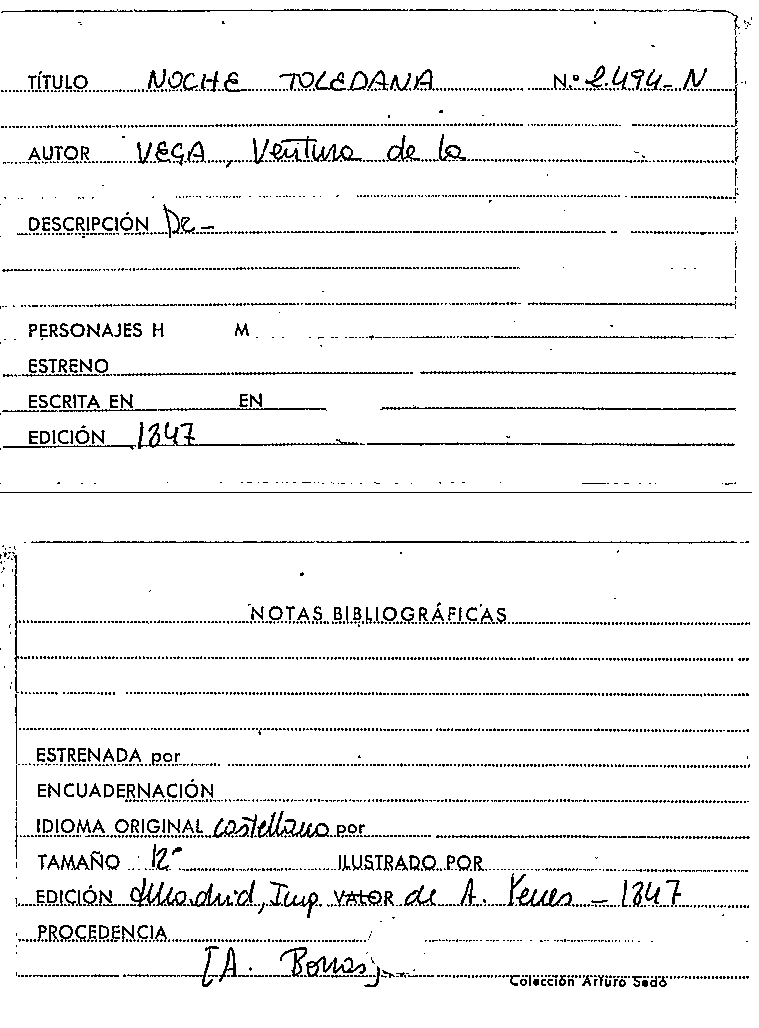 TÍTULO NOCHE TOLEDANA N.º 2.494-N
AUTOR VEGA, Ventura de la
DESCRIPCIÓN De-
PERSONAJES H M
ESTRENO
ESCRITA EN EN
EDICIÓN 1847
NOTAS BIBLIOGRÁFICAS
ESTRENADA por
ENCUADERNACIÓN
IDIOMA ORIGINAL castellano por
TAMAÑO 12º ILUSTRADO POR
EDICIÓN Madrid, Imp. VALOR de A. Yenes - 1847
PROCEDENCIA
[A. Borras]
Colección Arturo Sedó